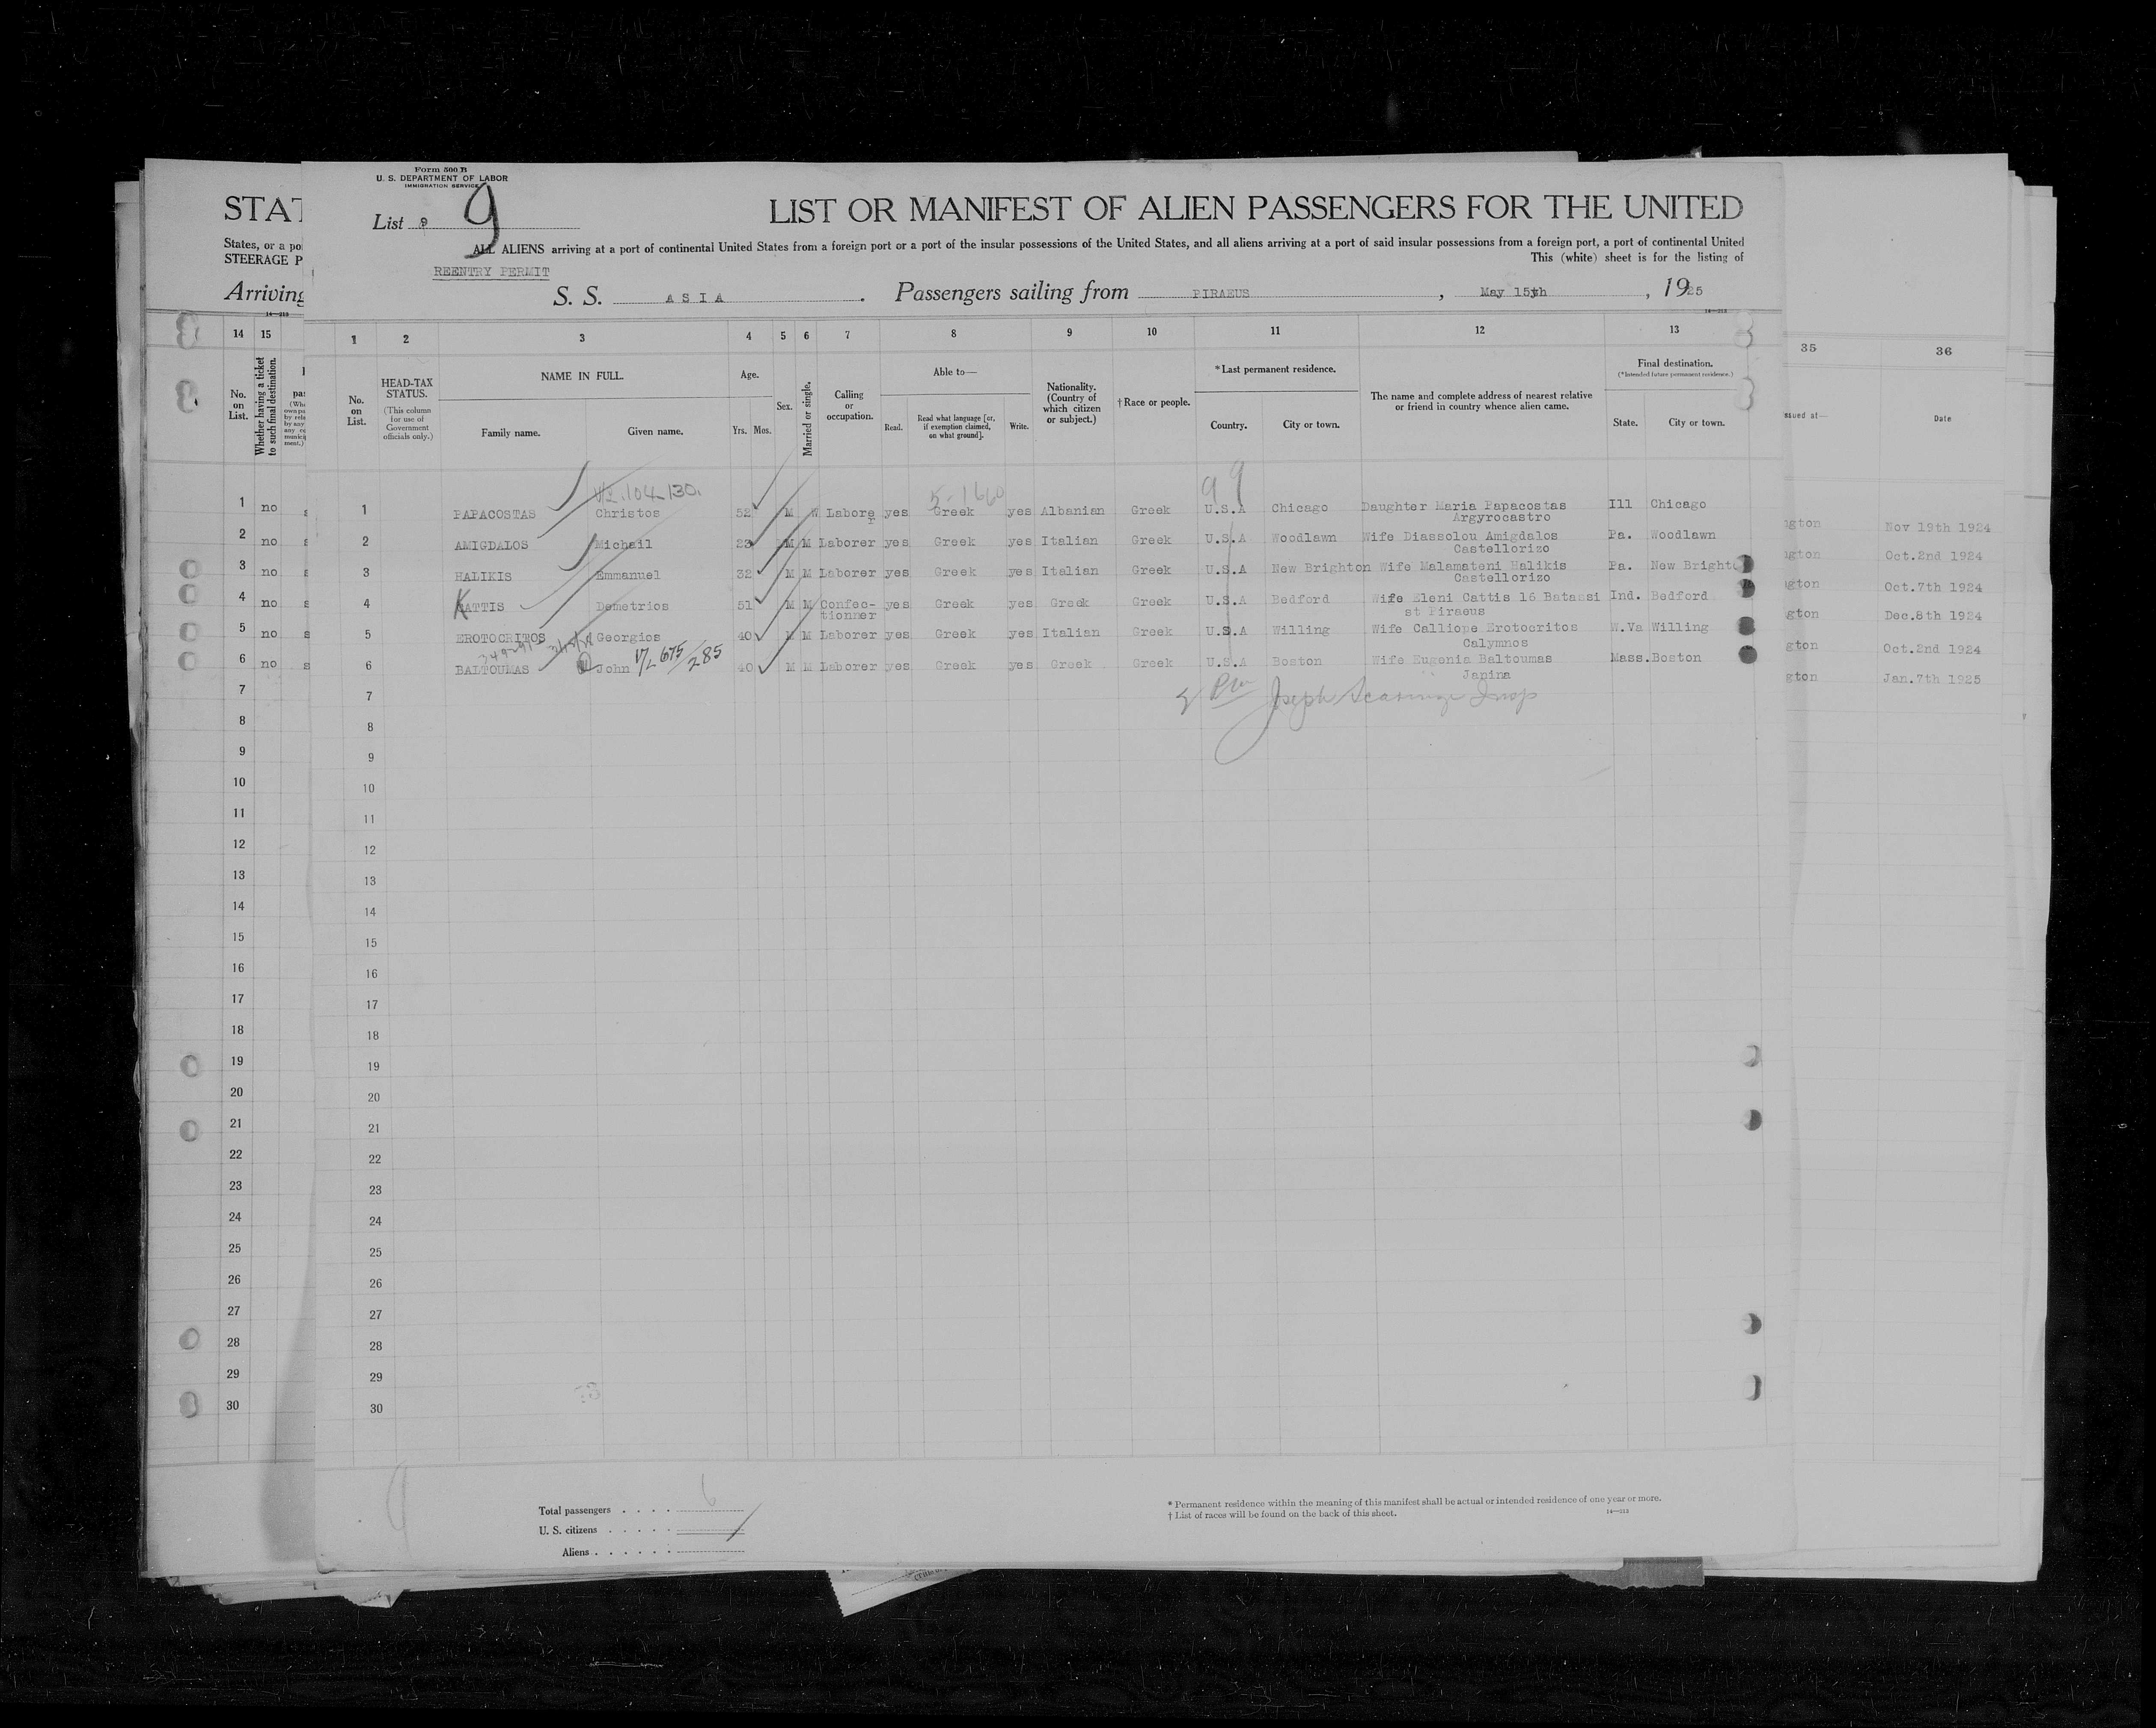 Form 500 B
U. S. DEPARTMENT OF LABOR
IMMIGRATION SERVICE
List 9
LIST OR MANIFEST OF ALIEN PASSENGERS FOR THE UNITED
ALL ALIENS arriving at a port of continental United States from a foreign port or a port of the insular possessions of the United States, and all aliens arriving at a port of said insular possessions from a foreign port, a port of continental United
This (white) sheet is for the listing of
REENTRY PERMIT
S. S. ASIA. Passengers sailing from PIRAEUS, May 15th, 1925
STAT
States, or a po
STEERAGE P
Arriving
14 15
No. on List.
Whether having a ticket to such final destination.
1 2 3 4 5 6 7 8 9 10 11 12 13
No. on List.
HEAD-TAX STATUS.
(This column for use of Government officials only.)
NAME IN FULL.
Family name. Given name.
Age.
Yrs. Mos.
Sex.
Married or single.
Calling or occupation.
Able to—
Read. Read what language [or, if exemption claimed, on what ground]. Write.
Nationality. (Country of which citizen or subject.)
†Race or people.
*Last permanent residence.
Country. City or town.
The name and complete address of nearest relative or friend in country whence alien came.
Final destination.
(*Intended future permanent residence.)
State. City or town.
35 36
sued at— Date
V2.104130. 5-1660 99
1 no 1 PAPACOSTAS Christos 52 M W Laborer yes Greek yes Albanian Greek U.S.A Chicago Daughter Maria Papacostas Argyrocastro Ill Chicago ngton Nov 19th 1924
2 no 2 AMIGDALOS Michail 23 M M Laborer yes Greek yes Italian Greek U.S.A Woodlawn Wife Diassolou Amigdalos Castellorizo Pa. Woodlawn ngton Oct.2nd 1924
3 no 3 HALIKIS Emmanuel 32 M M Laborer yes Greek yes Italian Greek U.S.A New Brighton Wife Malamateni Halikis Castellorizo Pa. New Bright ngton Oct.7th 1924
4 no 4 KATTIS Demetrios 51 M M Confectionner yes Greek yes Greek Greek U.S.A Bedford Wife Eleni Cattis 16 Bataosi st Piraeus Ind. Bedford gton Dec.8th 1924
5 no 5 EROTOCRITOS Georgios 40 M M Laborer yes Greek yes Italian Greek U.S.A Willing Wife Calliope Erotocritos Calymnos W.Va Willing gton Oct.2nd 1924
6 no 6 BALTOUMAS John V2 675/285 40 M M Laborer yes Greek yes Greek Greek U.S.A Boston Wife Eugenia Baltoumas Janina Mass. Boston gton Jan.7th 1925
7 7 Joseph Insp
8 8
9 9
10 10
11 11
12 12
13 13
14 14
15 15
16 16
17 17
18 18
19 19
20 20
21 21
22 22
23 23
24 24
25 25
26 26
27 27
28 28
29 29
30 30
9
Total passengers . . . . 6
U. S. citizens . . . . .
Aliens . . . . . .
* Permanent residence within the meaning of this manifest shall be actual or intended residence of one year or more.
† List of races will be found on the back of this sheet.
14—213